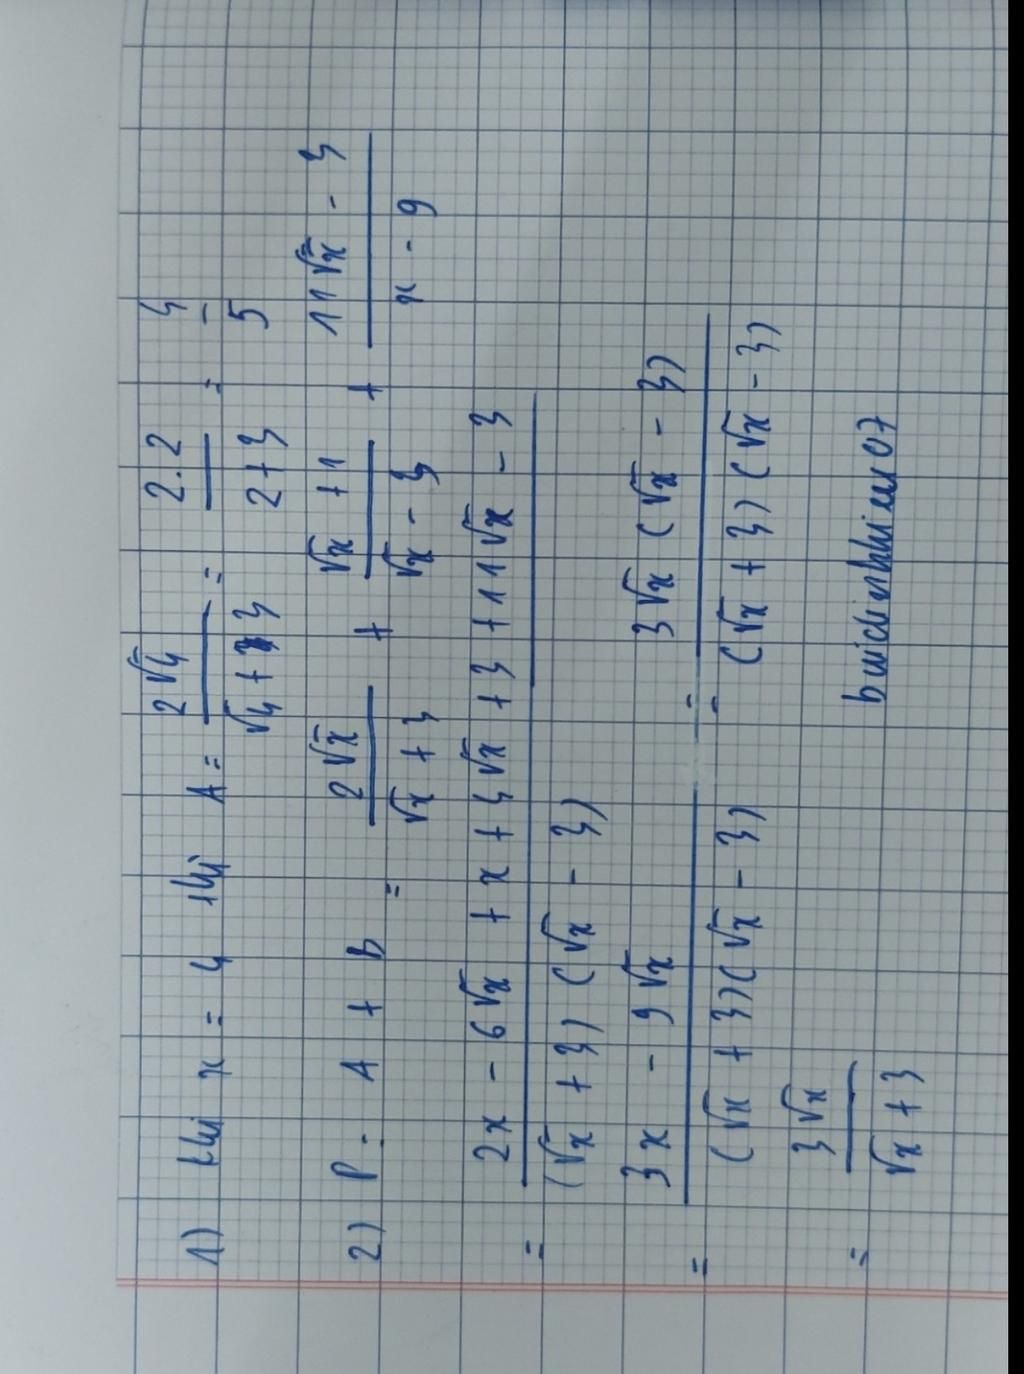 1) Khi x = 4 thì A = 2√4 / (√4 + 3) = 2.2 / (2+3) = 4/5
2) P = A + B = 2√x / (√x + 3) + (√x + 1) / (√x - 3) + (11√x - 3) / (x - 9)
= (2x - 6√x + x + 4√x + 3 + 11√x - 3) / ((√x + 3)(√x - 3))
= (3x - 9√x) / ((√x + 3)(√x - 3)) = 3√x(√x - 3) / ((√x + 3)(√x - 3))
= 3√x / (√x + 3)